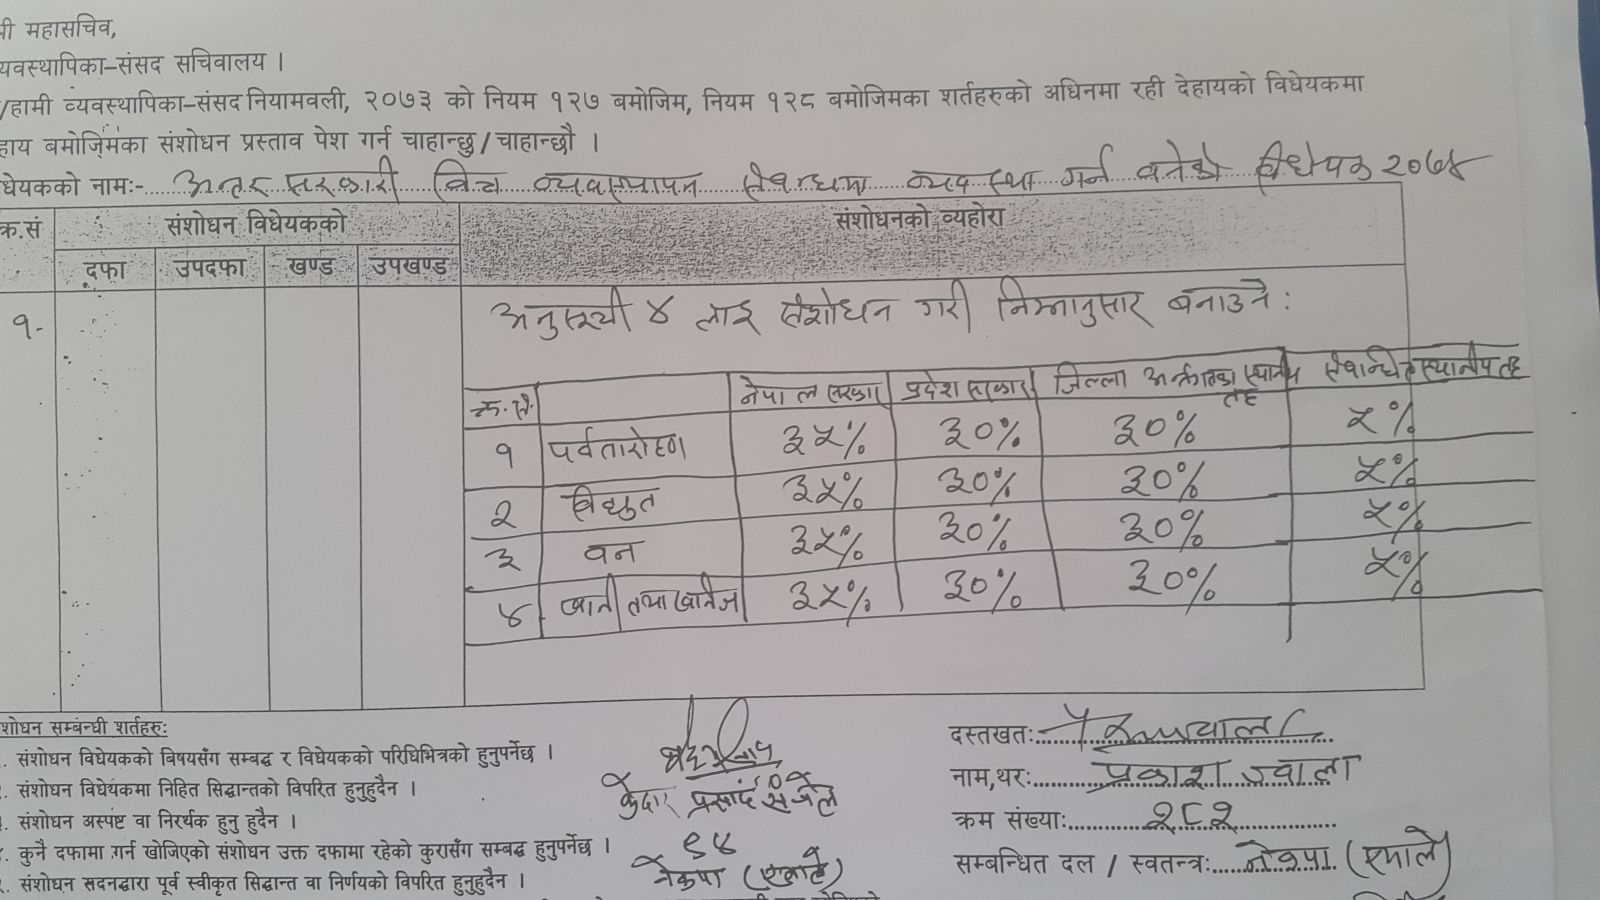 महासचिव,
व्यवस्थापिका-संसद सचिवालय ।
/हामी व्यवस्थापिका-संसद नियामवली, २०७३ को नियम १२७ बमोजिम, नियम १२८ बमोजिमका शर्तहरुको अधिनमा रही देहायको विधेयकमा
हाय बमोजिमका संशोधन प्रस्ताव पेश गर्न चाहान्छु / चाहान्छौ ।
धेयकको नामः- अन्तर सरकारी वित्त व्यवस्थापन सम्बन्धमा व्यवस्था गर्न बनेको विधेयक २०७४
क्र.सं संशोधन विधेयकको संशोधनको व्यहोरा
दफा उपदफा खण्ड उपखण्ड
१. अनुसूची ४ लाई संशोधन गरी निम्नानुसार बनाउने :
क्र.सं. नेपाल सरकार प्रदेश सरकार जिल्ला अर्न्तगतका स्थानीय तह सम्बन्धित स्थानीय तह
१ पर्वतारोहण ३५% ३०% ३०% ५%
२ विद्युत ३५% ३०% ३०% ५%
३ वन ३५% ३०% ३०% ५%
४ खानी तथा खनिज ३५% ३०% ३०% ५%
शोधन सम्बन्धी शर्तहरुः
. संशोधन विधेयकको विषयसँग सम्बद्ध र विधेयकको परिधिभित्रको हुनुपर्नेछ ।
. संशोधन विधेयकमा निहित सिद्धान्तको विपरित हुनुहुदैन ।
. संशोधन अस्पष्ट वा निरर्थक हुनु हुदैन ।
. कुनै दफामा गर्न खोजिएको संशोधन उक्त दफामा रहेको कुरासँग सम्बद्ध हुनुपर्नेछ ।
. संशोधन सदनद्वारा पूर्व स्वीकृत सिद्धान्त वा निर्णयको विपरित हुनुहुदैन ।
केदार प्रसाद संजेल
९४
नेकपा (एमाले)
दस्तखतः
नाम,थरः प्रकाश ज्वाला
क्रम संख्याः २८२
सम्बन्धित दल / स्वतन्त्रः नेकपा (एमाले)